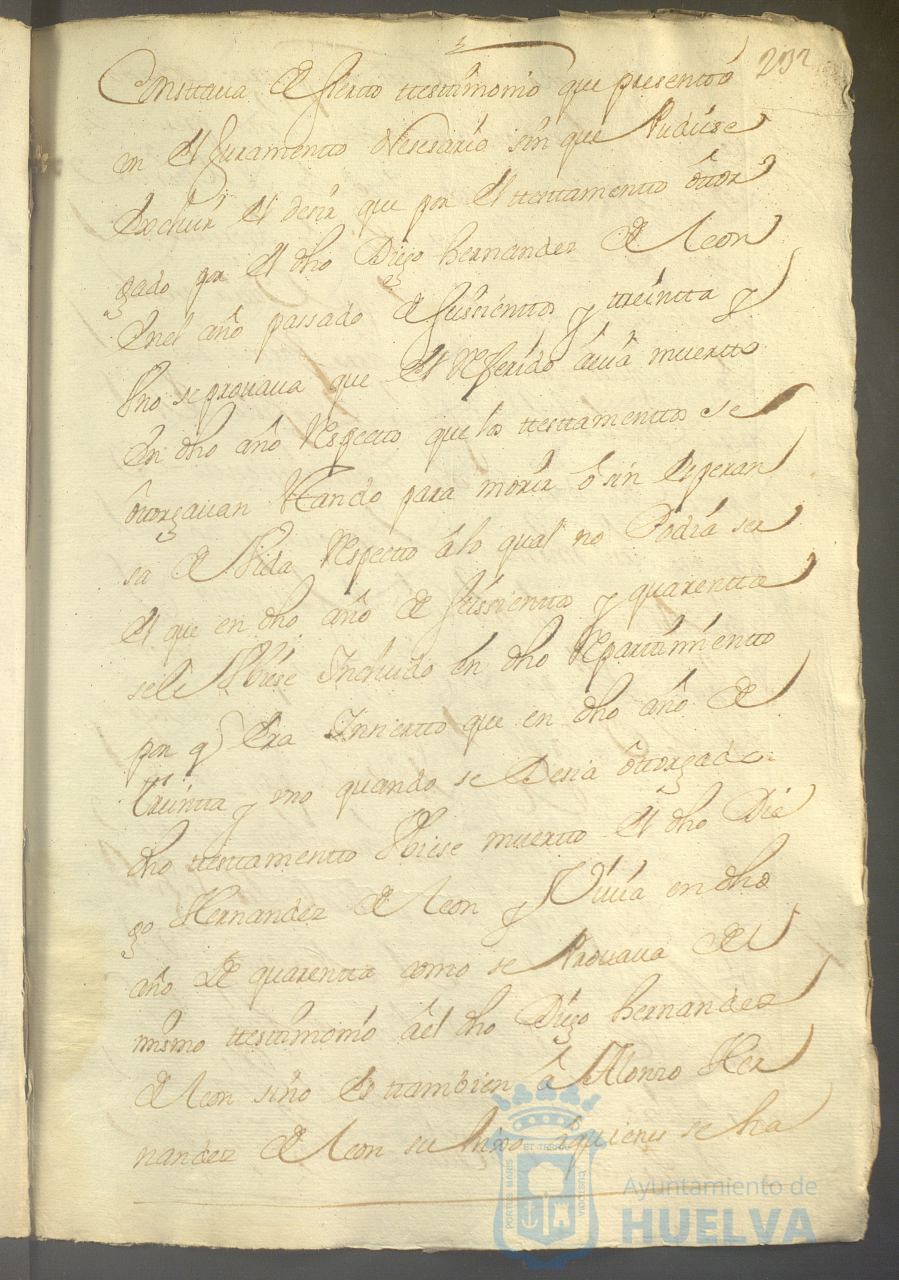 232
Consttava de sierto ttestimonio que presentto
en el Juramento nesesario sin que Pudiese
Excluir el desir que por el testtamento ôttor
gado por el dho Diego hernandez de Leon
Enel año passado de seissientos y treintta y
Uno se provava que el Referido âvia muertto
En dho año Respecto que los testtamenttos se
ôtorgavan Estando para morir ô sin Esperan
sa de Vida Respecto â lo qual no Podia ser
el que en dho año de seissientto y quarentta
sele Vbiese Incluido en dho Repartimientto
por q Era Inciertto que en dho año de
treintta y uno quando se desia ôttorgado
dho testtamentto Vbiese muertto el dho Die
go Hernandez de Leon y Vivia en dho
año de quarentta como se Provava del
mismo ttestimonio âel dho Diego hernandez
de Leon sino es ttambien â Alonzo Her
nandez de Leon su hijo aquienes se ha
Ayuntamiento de
HUELVA
PORTUS MARIS
ET TERRAE
CUSTODIA